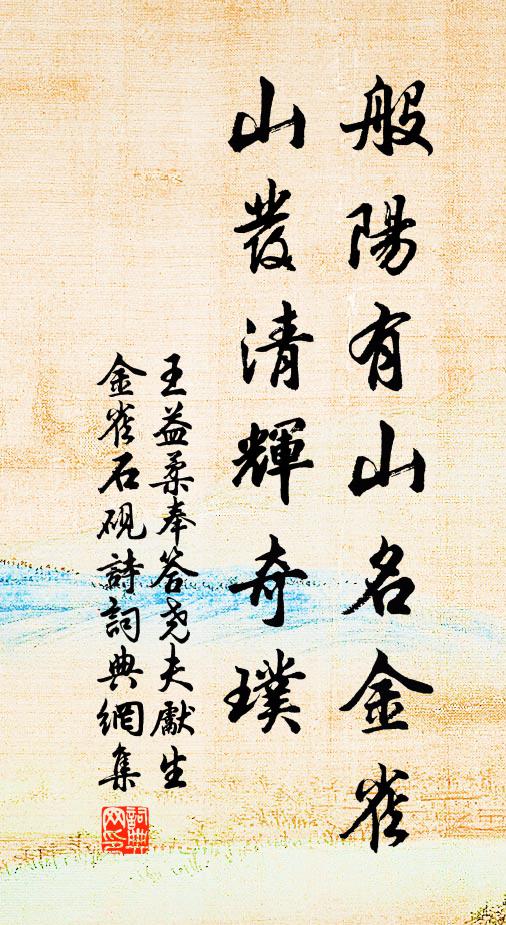 般陽有山名金雀
山發清輝奇璞
王益柔奉答尧夫獻生
金雀石硯詩詞典網集